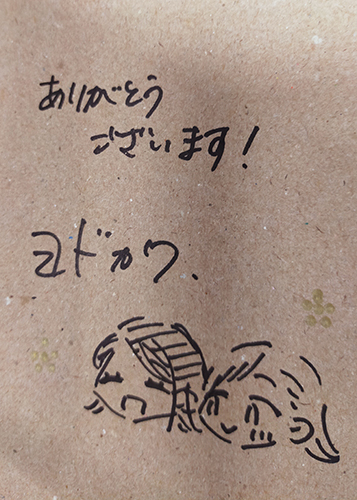 ありがとう
ございます!
ヨドカワ.